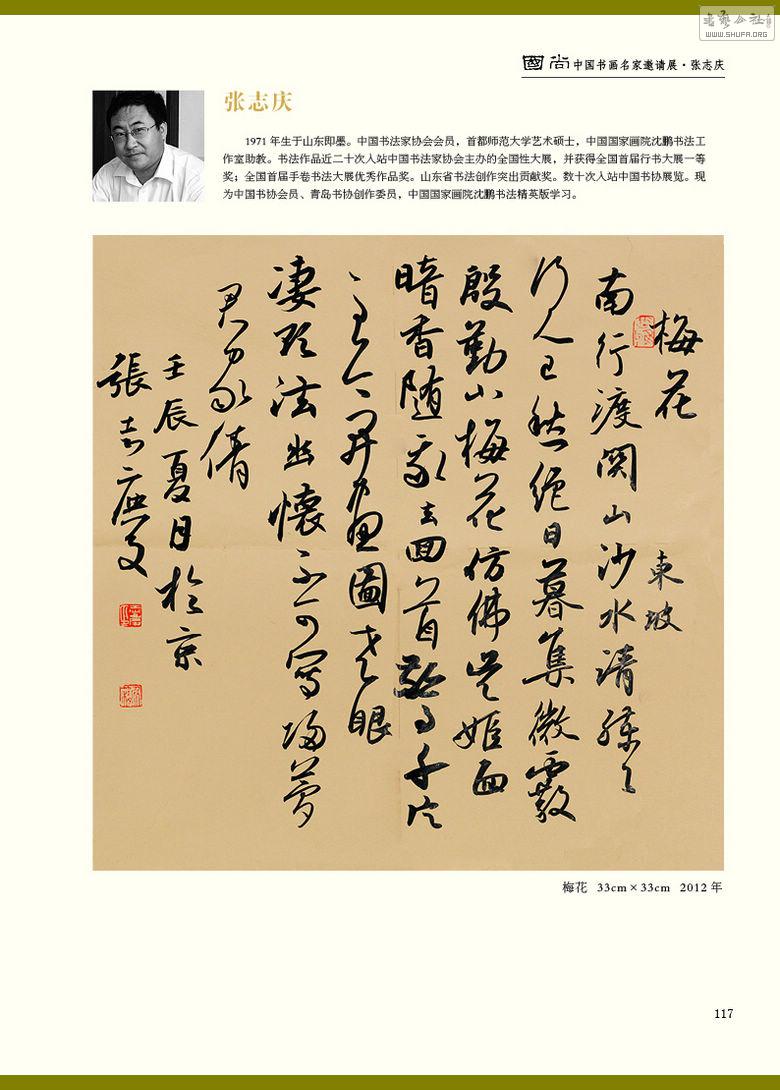 书艺公社
WWW.SHUFA.ORG
國尚 中国书画名家邀请展·张志庆
张志庆
1971 年生于山东即墨。中国书法家协会会员，首都师范大学艺术硕士，中国国家画院沈鹏书法工
作室助教。书法作品近二十次入站中国书法家协会主办的全国性大展，并获得全国首届行书大展一等
奖；全国首届手卷书法大展优秀作品奖。山东省书法创作突出贡献奖。数十次入站中国书协展览。现
为中国书协会员、青岛书协创作委员，中国国家画院沈鹏书法精英版学习。
梅花
東坡
南行渡関山沙水清練々
行人已愁絕日暮集微霰
殷勤小梅花仿佛吳姬面
暗香随我去回首驚千片
至今開畫圖老眼
淒欲泫幽懷不可寫歸夢
君家倩
壬辰夏月於京
張志慶
梅花 33cm×33cm 2012 年
117